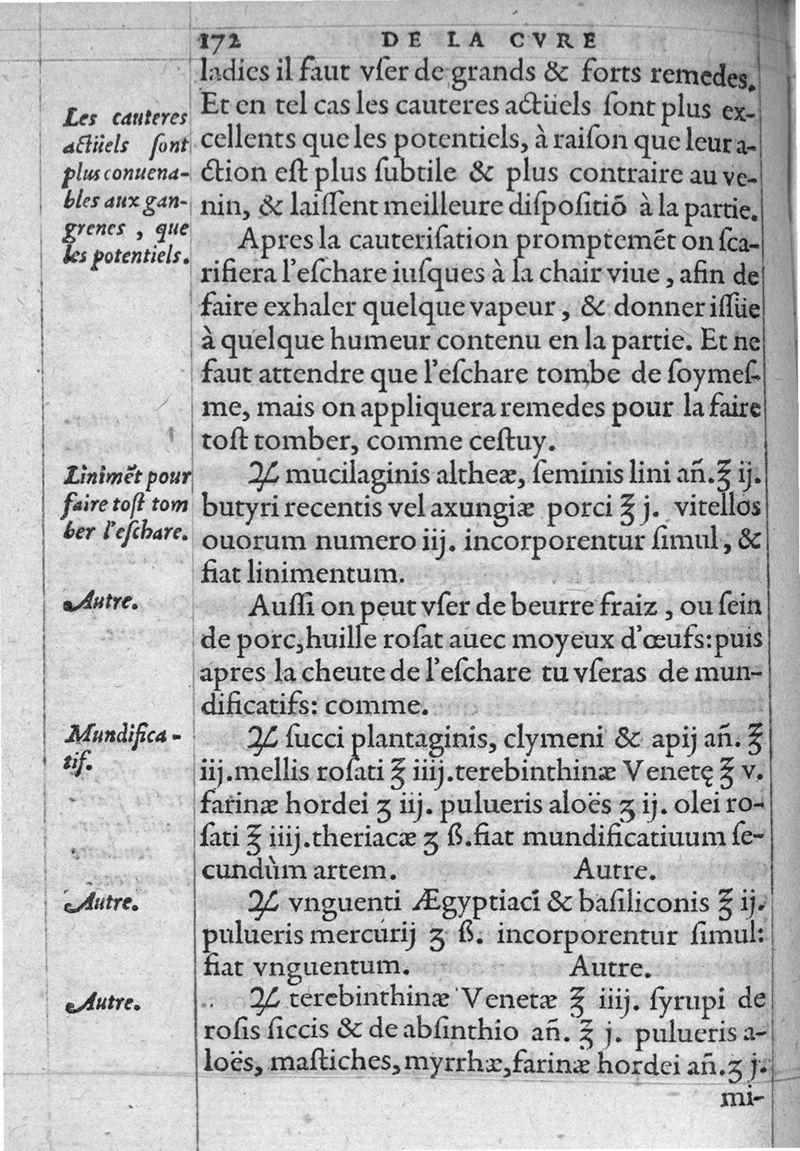 172 DE LA CVRE
ladies il faut vſer de grands & forts remedes.
Et en tel cas les cauteres actüels ſont plus ex-
cellents que les potentiels, à raiſon que leur a-
ction eſt plus ſubtile & plus contraire au ve-
nin, & laiſſent meilleure diſpoſitiō à la partie.
Les cauteres
actüels ſont
plus conuena-
bles aux gan-
grenes, que
les potentiels.
Apres la cauteriſation promptemēt on ſca-
rifiera l'eſchare iuſques à la chair viue, afin de
faire exhaler quelque vapeur, & donner iſſüe
à quelque humeur contenu en la partie. Et ne
faut attendre que l'eſchare tombe de ſoymeſ-
me, mais on appliquera remedes pour la faire
toſt tomber, comme ceſtuy.
Linimēt pour
faire toſt tom
ber l'eſchare.
℞ mucilaginis altheæ, ſeminis lini añ. ℥ ij.
butyri recentis vel axungiæ porci ℥ j. vitellos
ouorum numero iij. incorporentur ſimul, &
fiat linimentum.
Autre.
Auſſi on peut vſer de beurre fraiz, ou ſein
de porc, huille roſat auec moyeux d'œufs: puis
apres la cheute de l'eſchare tu vſeras de mun-
dificatifs: comme.
Mundifica-
tif.
℞ ſucci plantaginis, clymeni & apij añ. ℥
iij. mellis roſati ℥ iiij. terebinthinæ Venetę ℥ v.
farinæ hordei ʒ iij. pulueris aloës ʒ ij. olei ro-
ſati ℥ iiij. theriacæ ʒ ß. fiat mundificatiuum ſe-
cundùm artem. Autre.
Autre.
℞ vnguenti Ægyptiaci & baſiliconis ℥ ij.
pulueris mercurij ʒ ß. incorporentur ſimul:
fiat vnguentum. Autre.
Autre.
℞ terebinthinæ Venetæ ℥ iiij. ſyrupi de
roſis ſiccis & de abſinthio añ. ℥ j. pulueris a-
loës, maſtiches, myrrhæ, farinæ hordei añ. ʒ j.
mi-